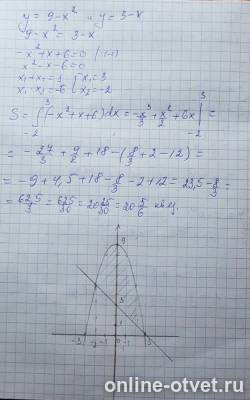 y = 9 - x² и y = 3 - x
9 - x² = 3 - x
-x² + x + 6 = 0 | (-1)
x² - x - 6 = 0
x₁ + x₂ = 1 { x₁ = 3
x₁ · x₂ = -6 { x₂ = -2
S = ∫₋₂³ (-x² + x + 6)dx = -x³/3 + x²/2 + 6x |₋₂³ =
= -27/3 + 9/2 + 18 - (8/3 + 2 - 12) =
= -9 + 4,5 + 18 - 8/3 - 2 + 12 = 23,5 - 8/3 =
= 62,5/3 = 625/30 = 20 25/30 = 20 5/6 кв. ед.
9
3
1
-3 -2 0 1 3
online-otvet.ru